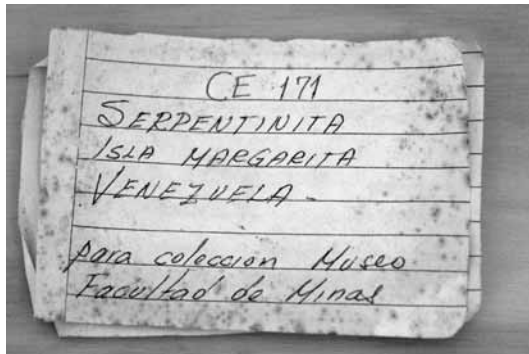 CE 171
SERPENTINITA
ISLA MARGARITA
VENEZUELA -
para coleccion Museo
Facultad de Minas